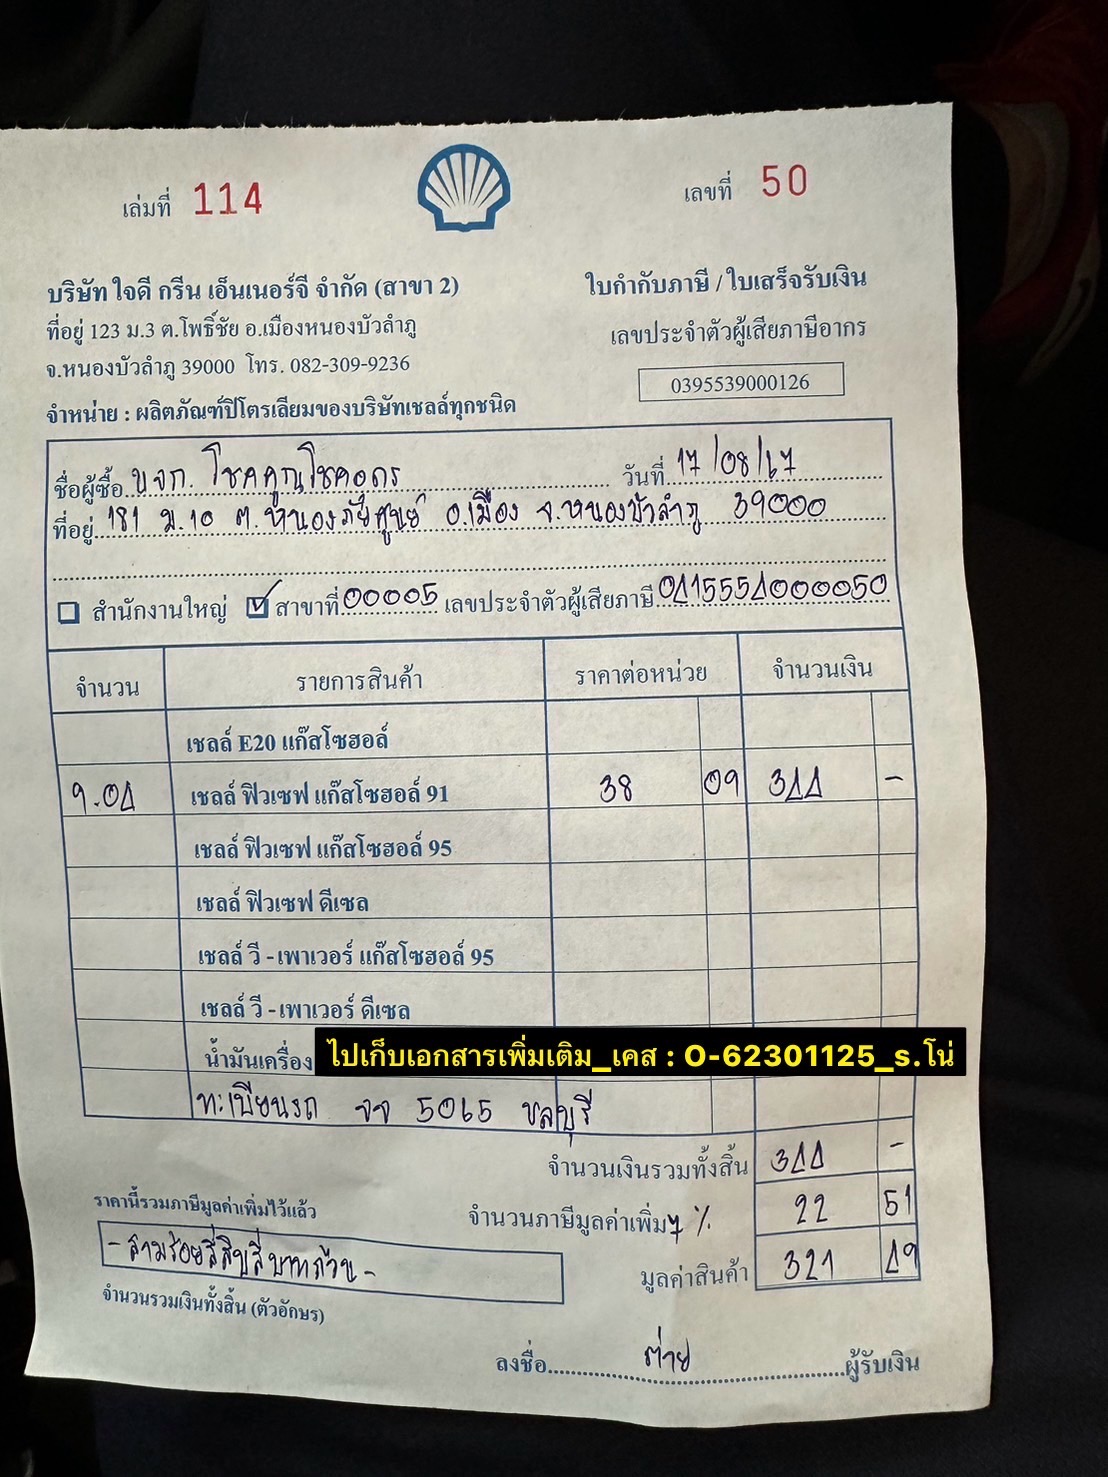 เล่มที่ 114
เลขที่ 50
บริษัท ใจดี กรีน เอ็นเนอร์จี จำกัด (สาขา 2)
ใบกำกับภาษี / ใบเสร็จรับเงิน
ที่อยู่ 123 ม.3 ต.โพธิ์ชัย อ.เมืองหนองบัวลำภู
เลขประจำตัวผู้เสียภาษีอากร
จ.หนองบัวลำภู 39000 โทร. 082-309-9236
0395539000126
จำหน่าย : ผลิตภัณฑ์ปิโตรเลียมของบริษัทเชลล์ทุกชนิด
ชื่อผู้ซื้อ บจก. โชคคูณโชคอุดร วันที่ 17/08/67
ที่อยู่ 181 ม.10 ต.หนองภัยศูนย์ อ.เมือง จ.หนองบัวลำภู 39000
สำนักงานใหญ่ สาขาที่ 00005 เลขประจำตัวผู้เสียภาษี 0415554000050
จำนวน รายการสินค้า ราคาต่อหน่วย จำนวนเงิน
เชลล์ E20 แก๊สโซฮอล์
9.04 เชลล์ ฟิวเซฟ แก๊สโซฮอล์ 91 38 09 344 -
เชลล์ ฟิวเซฟ แก๊สโซฮอล์ 95
เชลล์ ฟิวเซฟ ดีเซล
เชลล์ วี - เพาเวอร์ แก๊สโซฮอล์ 95
เชลล์ วี - เพาเวอร์ ดีเซล
น้ำมันเครื่อง
ไปเก็บเอกสารเพิ่มเติม_เคส : O-62301125_s.โน่
ทะเบียนรถ จจ 5065 ชลบุรี
จำนวนเงินรวมทั้งสิ้น 344 -
ราคานี้รวมภาษีมูลค่าเพิ่มไว้แล้ว
จำนวนภาษีมูลค่าเพิ่ม 7 % 22 51
- สามร้อยสี่สิบสี่บาทถ้วน -
มูลค่าสินค้า 321 49
จำนวนรวมเงินทั้งสิ้น (ตัวอักษร)
ลงชื่อ ต่าย ผู้รับเงิน